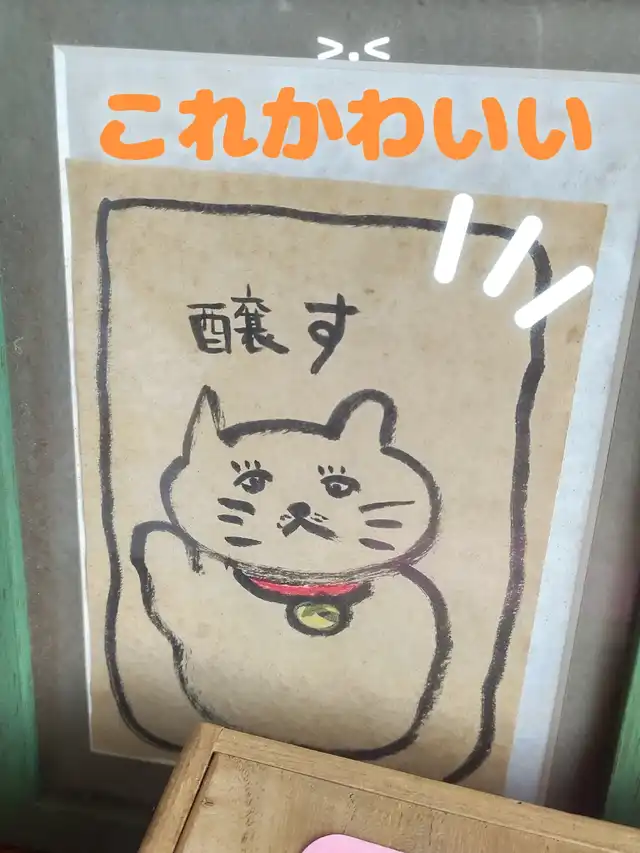 >.<
これかわいい
醸す